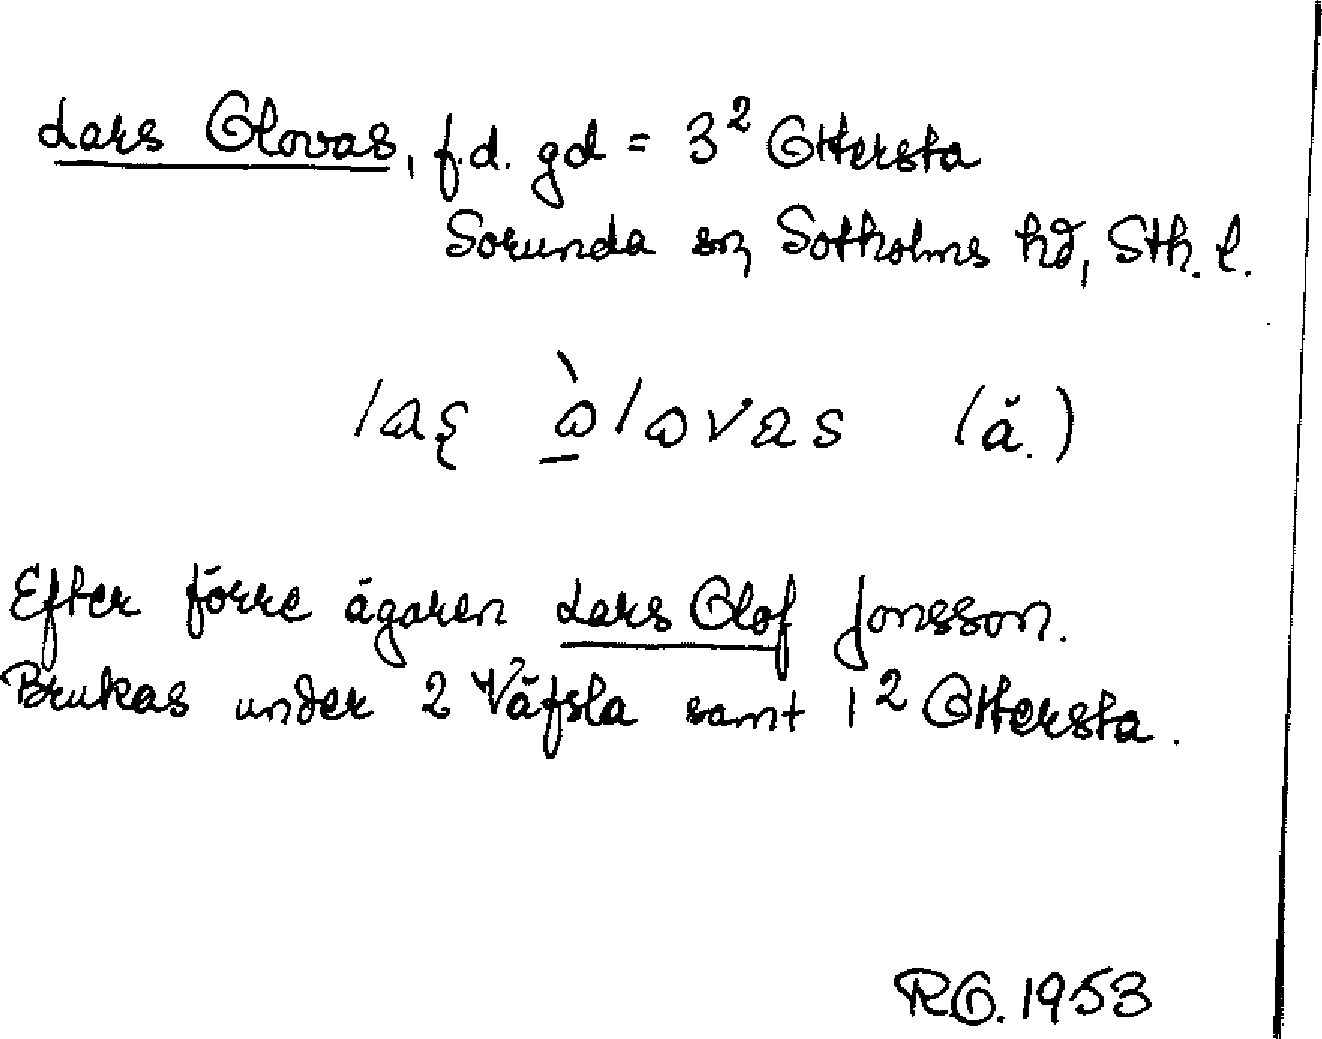 Lars Olovas, f.d. gd = 3² Ottersta
Sorunda sn, Sotholms hd, Sth. l.
las̨ òlovas (ă.)
Efter förre ägaren Lars Olof Jonsson.
Brukas under 2 Väfsla samt 1² Ottersta.
R.O. 1953